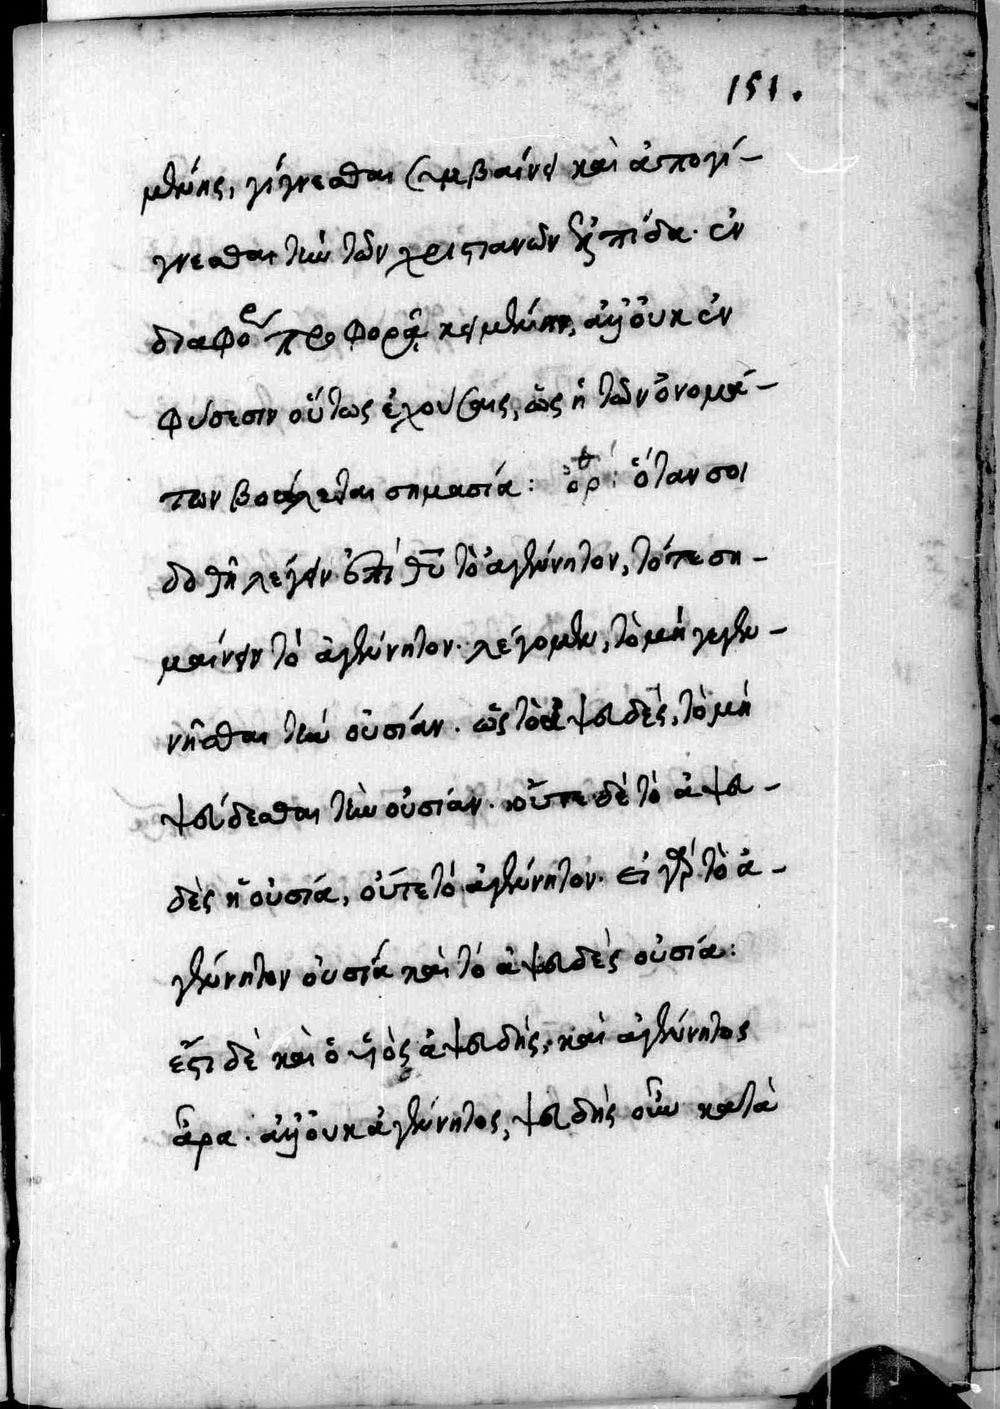 151.
μένης, γίγνεσθαι συμβαίνει καὶ ἀπογί-
γνεσθαι τὴν τῶν χριστιανῶν ἐλπίδα. ἐν
διαφόρ προφορᾷ κειμένην, ἀλλ' οὐκ ἐν
φύσεσιν οὕτως ἐχούσαις, ὡς ἡ τῶν ὀνομά-
των βούλεται σημασία: ὀρθ: ὅταν σοι
δοθῇ λέγειν ἐπὶ θῦ τὸ ἀγένητον, τότε ση-
μαίνειν τὸ ἀγένητον. λέγομεν, τὸ μὴ γεγεν-
νῆσθαι τὴν οὐσίαν. ὡς τὸ ἀψευδὲς, τὸ μὴ
ψεύδεσθαι τὴν οὐσίαν. οὔτε δὲ τὸ ἀψευ-
δὲς ἡ οὐσία, οὔτε τὸ ἀγένητον. εἰ γὰρ τὸ ἀ-
γένητον οὐσία καὶ τὸ ἀψευδὲς οὐσία:
ἔστι δὲ καὶ ὁ υἱὸς ἀψευδής, καὶ ἀγένητος
ἄρα. ἀλλ' οὐκ ἀγένητος, ψευδὴς οὖν κατὰ